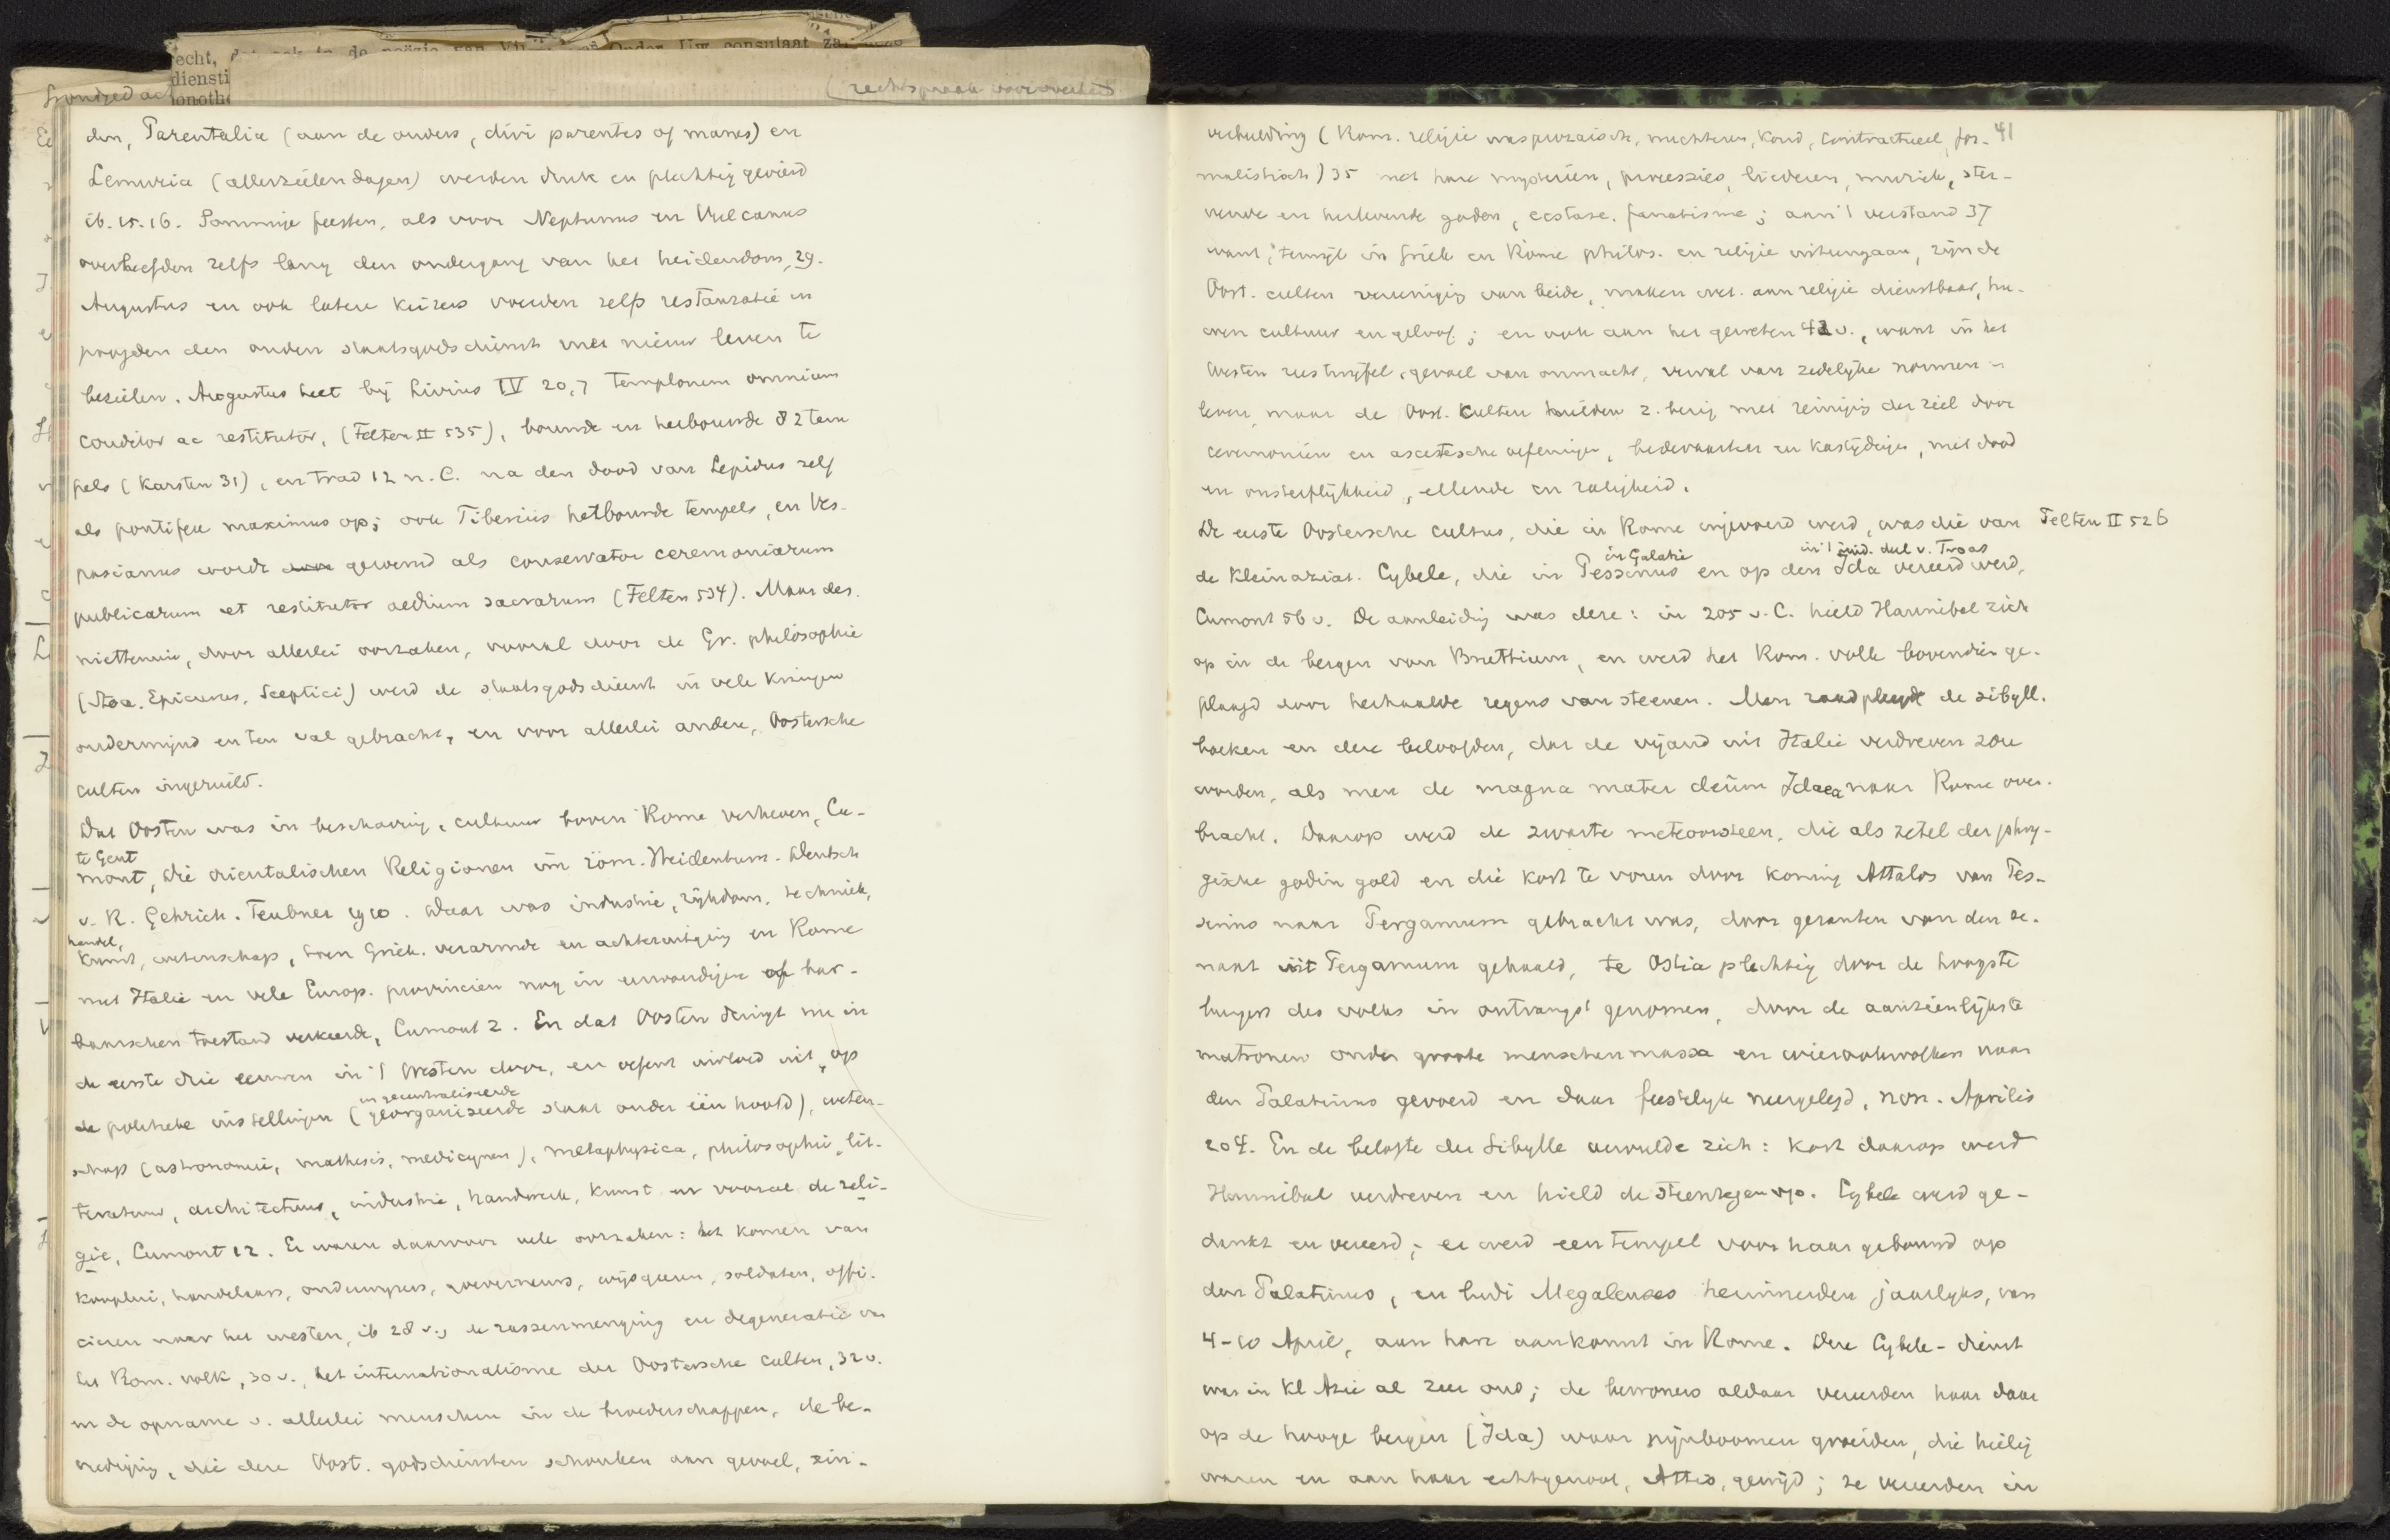 echt, dat ook in de poëzie van Onder Uw consulaat za
diensti
onoth
(rechtspraak
den, Parentalia (aan de ouders, divi parentes of manes) en
Lemuria (allerzielendagen) werden druk en plechtig gevierd
ib. 15. 16. Sommige feesten, als voor Neptunus en Vulcanus
overleefden zelfs lang den ondergang van het heidendom, 29.
Augustus en ook latere keizers voerden zelfs restauratie in
poogden den ouden staatsgodsdienst met nieuw leven te
bezielen. Augustus heet bij Livius IV 20,7 templorum omnium
conditor ac restitutor, (Felten II 535), bouwde en herbouwde 82 tem
pels (Karsten 31), en trad 12 n. C. na den dood van Lepidus zelf
als pontifex maximus op; ook Tiberius herbouwde tempels, en Ves-
pasianus wordt geroemd als conservator ceremoniarum
publicarum et restitutor aedium sacrarum (Felten 534). Maar des
niettemin, door allerlei oorzaken, vooral door de Gr. philosophie
(Stoa, Epicurus, Sceptici) werd de staatsgodsdienst in vele kringen
ondermijnd en ten val gebracht, en voor allerlei andere, Oostersche
culten ingeruild.
Dat Oosten was in beschaving, cultuur boven Rome verheven, Cu-
te Gent
mont, Die orientalischen Religionen im röm. Heidentum. Deutsch
v. R. Gehrich. Teubner 1910. Daar was industrie, rijkdom, techniek,
handel,
kunst, wetenschap, toen Griek. verarmde en achteruitging en Rome
met Italië en vele Europ. provinciën nog in eenvoudigen of bar-
baarschen toestand verkeerde, Cumont 2. En dat Oosten dringt nu in
de eerste drie eeuwen in 't Westen door, en oefent invloed uit op
en gecentraliseerde
de politieke instellingen (georganiseerde staat onder één hoofd), weten-
schap (astronomie, mathesis, medicynen), metaphysica, philosophie, lit-
teratuur, architectuur, industrie, handwerk, kunst en vooral de reli-
gie, Cumont 12. Er waren daarvoor vele oorzaken: het komen van
kooplui, handelaars, gouverneurs, wijsgeeren, soldaten, offi-
cieren naar het westen, ib 28 v., de rassenmenging en degeneratie van
het Rom. volk, 30 v., het internationalisme der Oostersche culten, 32 v.
en de opname v. allerlei menschen in de broederschappen, de be-
vrediging, die deze Oost. godsdiensten schonken aan gevoel, zin-
41
verbeelding (Rom. religie was prozaisch, nuchteren, koud, contractueel, for-
malistisch) 35 met hare mysteriën, processies, liederen, muziek, ster-
vende en herlevende goden, ecstase, fanatisme; aan 't verstand 37
want, terwijl in Griek en Rome philos. en religie uiteengaan, zijn de
Oost. culten vereeniging van beide, maken wet. aan religie dienstbaar, hu-
wen cultuur en geloof; en ook aan het geweten 42 v., want in het
Westen was twijfel, gevoel van onmacht, verval van zedelijke normen en
leven, maar de Oost. culten hielden z. bezig met reiniging der ziel door
ceremoniën en ascetische oefeningen, bedevaarten en kastijdingen, met dood
en onsterflijkheid, ellende en zaligheid.
De eerste Oostersche cultus, die in Rome ingevoerd werd, was die van Felten II 526
in Galatie in 't zuid. deel v. Troas
de Kleinaziat. Cybele, die in Pessinus en op den Ida vereerd werd,
Cumont 56 v. De aanleiding was deze: in 205 v. C. hield Hannibal zich
op in de bergen van Bruttium, en werd het Rom. volk bovendien ge-
plaagd door herhaalde regens van steenen. Men raadpleegde de sibyll.
boeken en deze beloofden, dat de vijand uit Italië verdreven zou
worden, als men de magna mater deum Idaea naar Rome over-
bracht. Daarop werd de zwarte meteoorsteen, die als zetel der phry-
gische godin gold en die kort te voren door koning Attalos van Pes-
sinus naar Pergamum gebracht was, door gezanten van den se-
naat uit Pergamum gehaald, te Ostia plechtig door de hoogste
burgers des volks in ontvangst genomen, door de aanzienlijkste
matronen onder groote menschenmassa en wierookwolken naar
den Palatinus gevoerd en daar feestelijk neergelegd, non. Aprilis
204. En de belofte der Sibylle vervulde zich: kort daarop werd
Hannibal verdreven en hield de steenregen op. Cybele werd ge-
dankt en vereerd; er werd een tempel voor haar gebouwd op
den Palatinus, en ludi Megalenses herinnerden jaarlyks, van
4-10 April, aan hare aankomst in Rome. Deze Cybele-dienst
was in Kl Azië al zeer oud; de bewoners aldaar vereerden haar daar
op de hooge bergen (Ida) waar pijnboomen groeiden, die heilig
waren en aan haar echtgenoot, Attis, gewijd; ze vereerden in